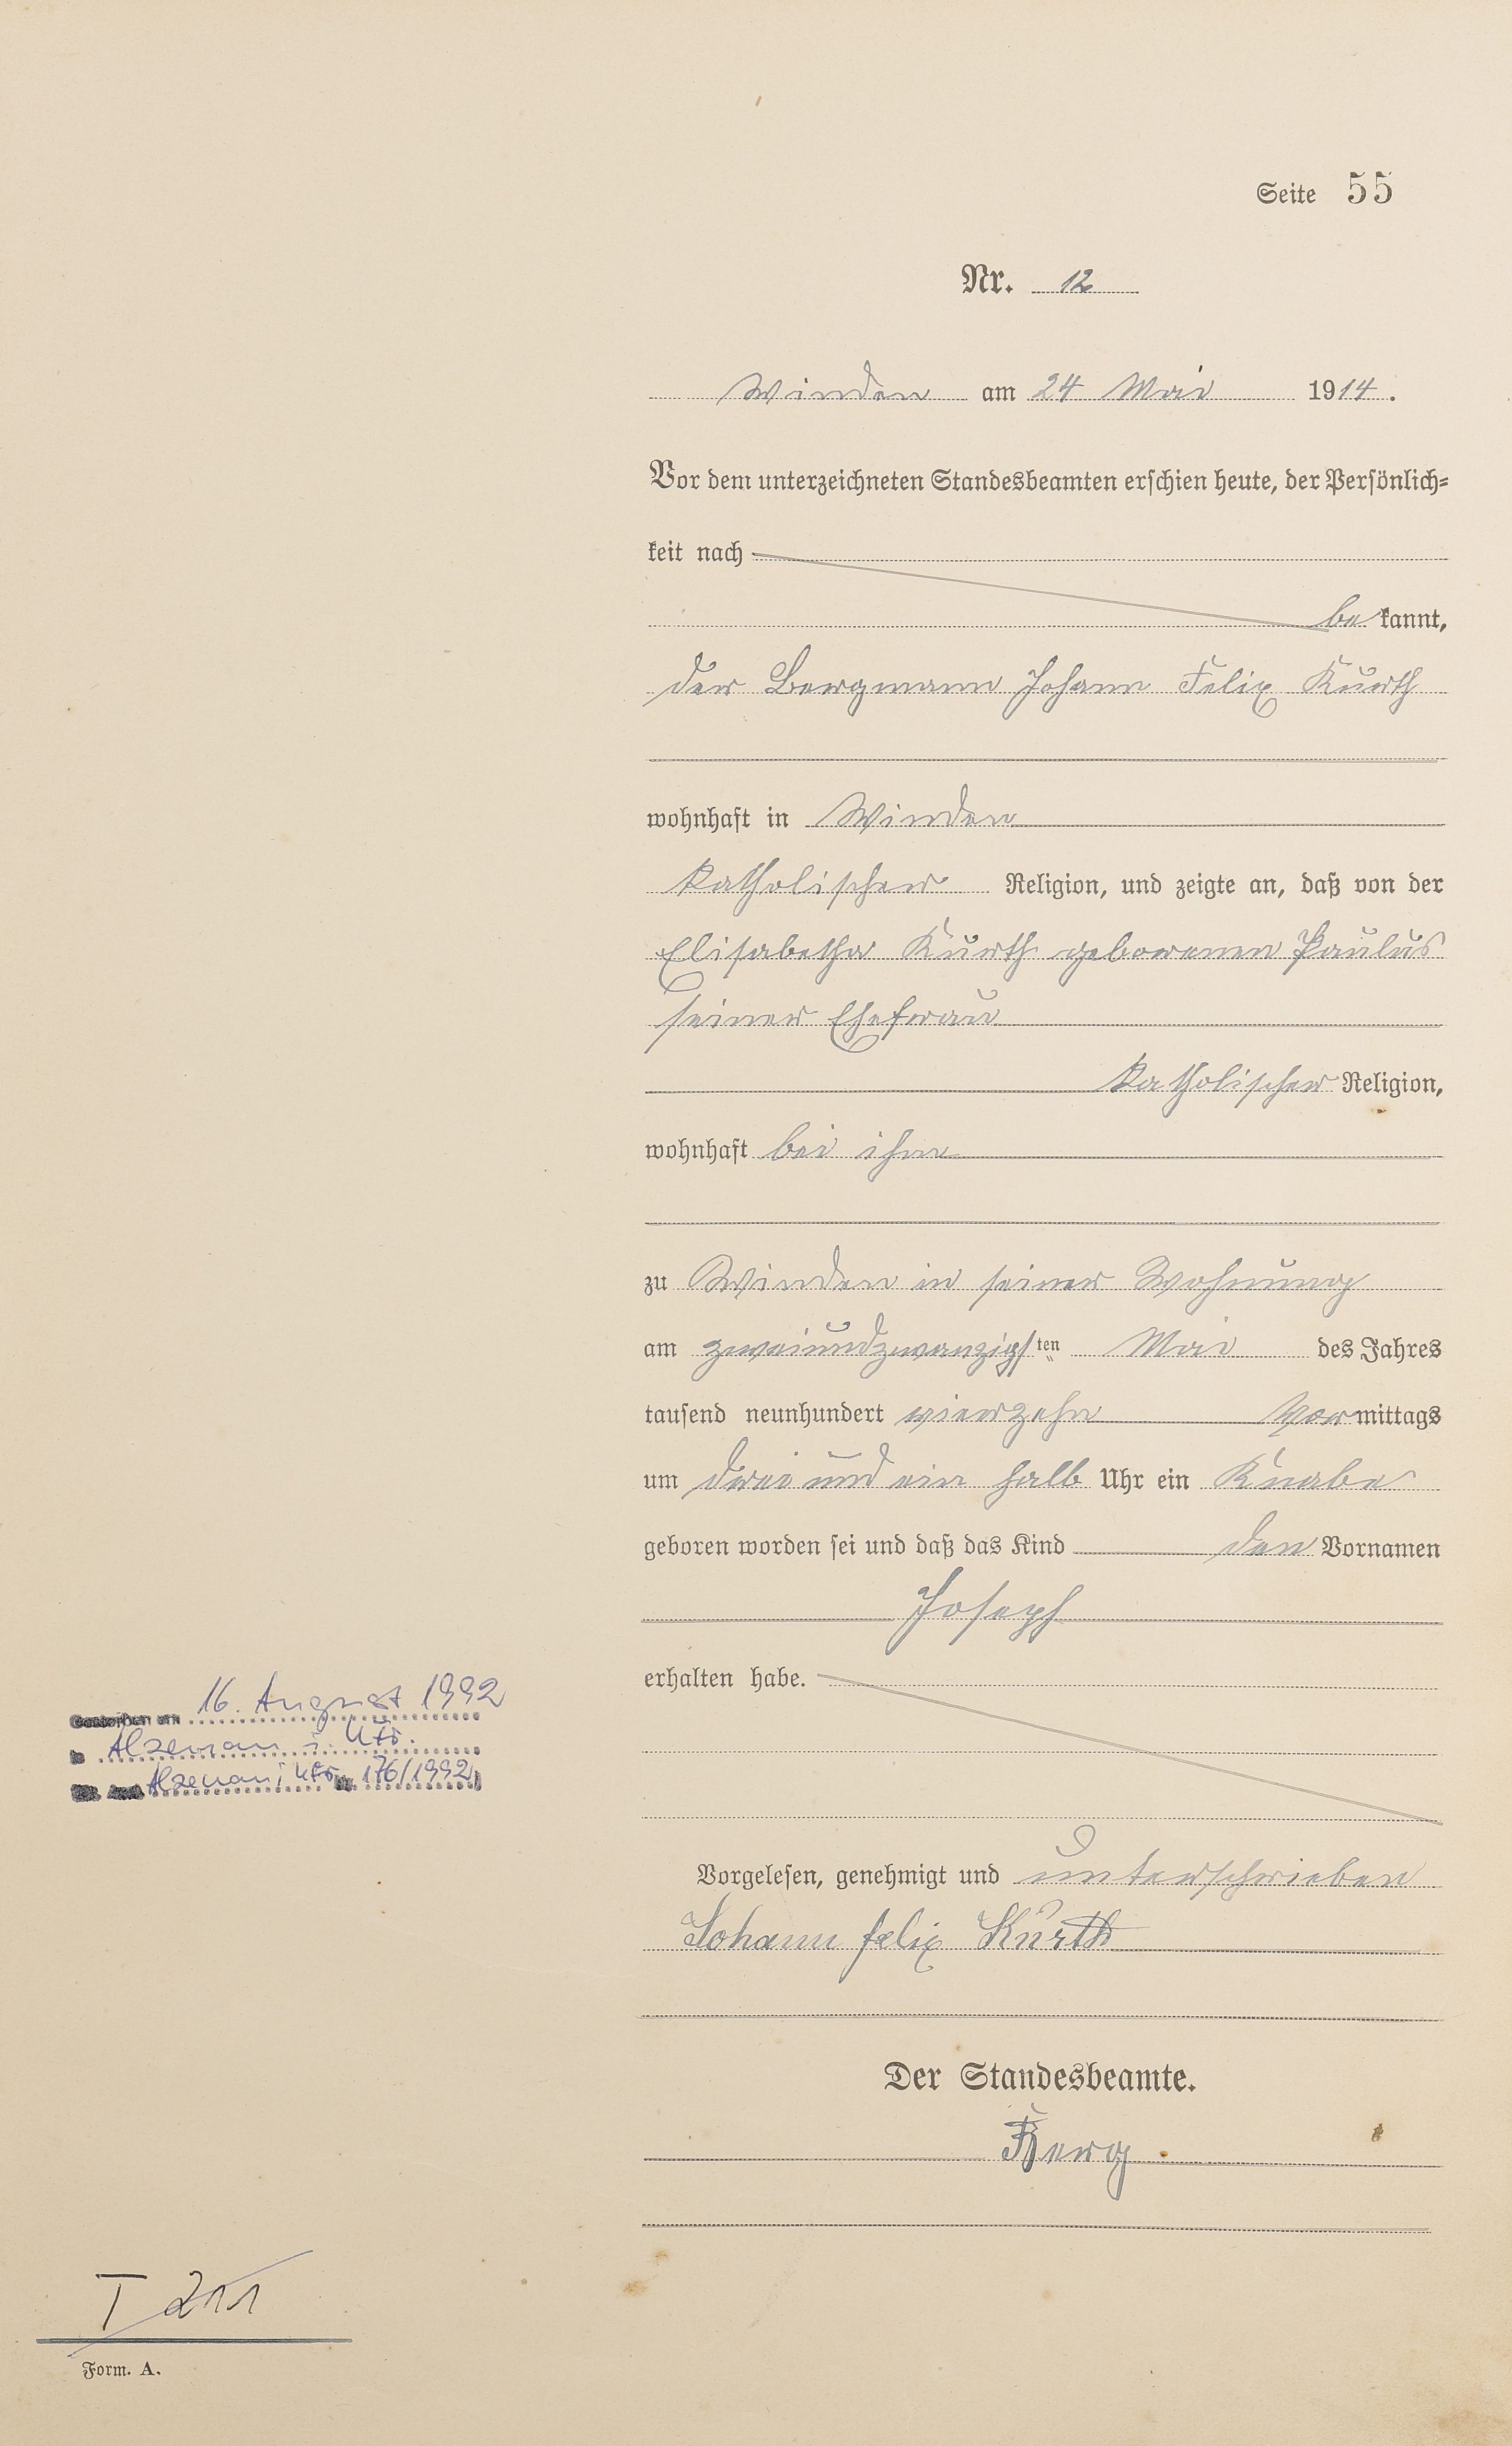 Seite 55
Nr. 12
Winden am 24 Mai 1914.
Vor dem unterzeichneten Standesbeamten erschien heute, der Persönlich=
keit nach
be kannt,
der Bergmann Johann Felix Kurth
wohnhaft in Winden
katholischer Religion, und zeigte an, daß von der
Elisabetha Kurth geborenen Paulus
seiner Ehefrau
katholischer Religion,
wohnhaft bei ihm
zu Winden in seiner Wohnung
am zweiundzwanzigsten Mai des Jahres
tausend neunhundert vierzehn Vormittags
um drei und ein halb Uhr ein Knabe
geboren worden sei und daß das Kind den Vornamen
Joseph
erhalten habe.
Gestorben am 16. August 1992
in Alzenau i. Ufr.
Alzenau i Ufr. Nr. 176/1992
Vorgelesen, genehmigt und unterschrieben
Johann felix Kurth
Der Standesbeamte.
I 211
Form. A.